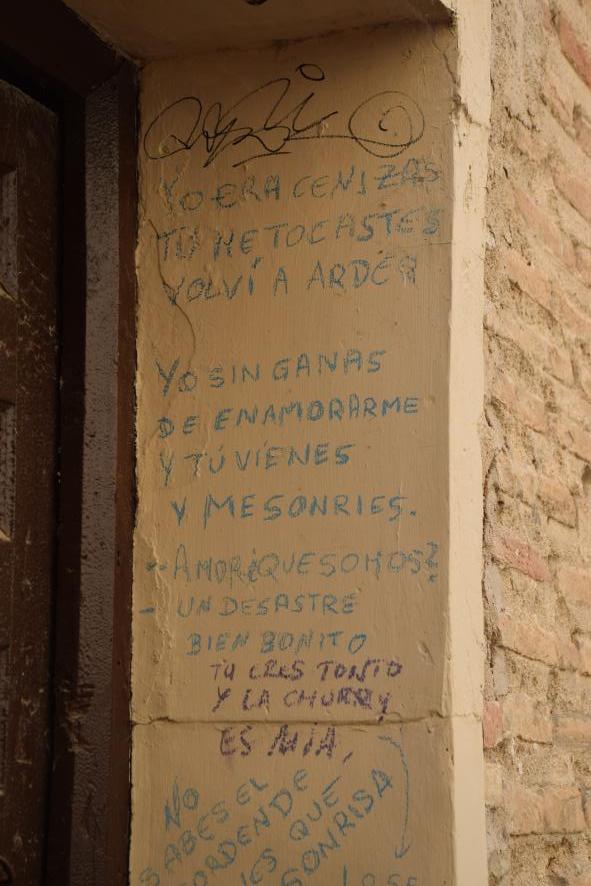 YO ERA CENIZAS
TÚ ME TOCASTES
VOLVÍ A ARDER
YO SIN GANAS
DE ENAMORARME
Y TÚ VIENES
Y ME SONRIES.
- AMOR ¿QUE SOMOS?
- UN DESASTRE
BIEN BONITO
TU ERES TONTO
Y LA CHURRY
ES MIA,
NO
SABES EL
DESORDEN DE
QUE
SONRISA